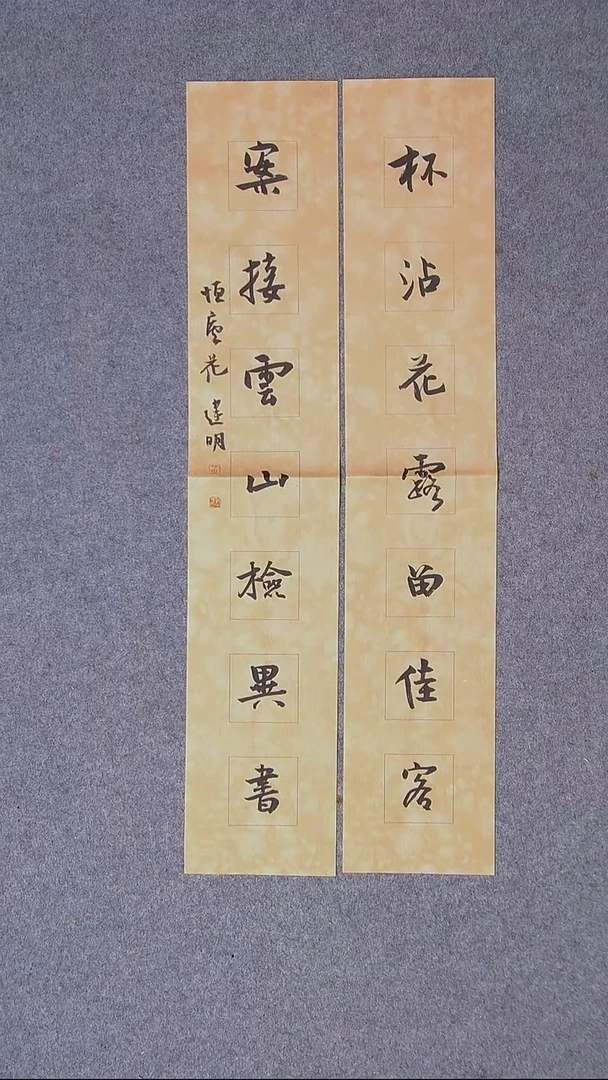 杯沾花露留佳客
案接雲山檢異書
恒廬花建明